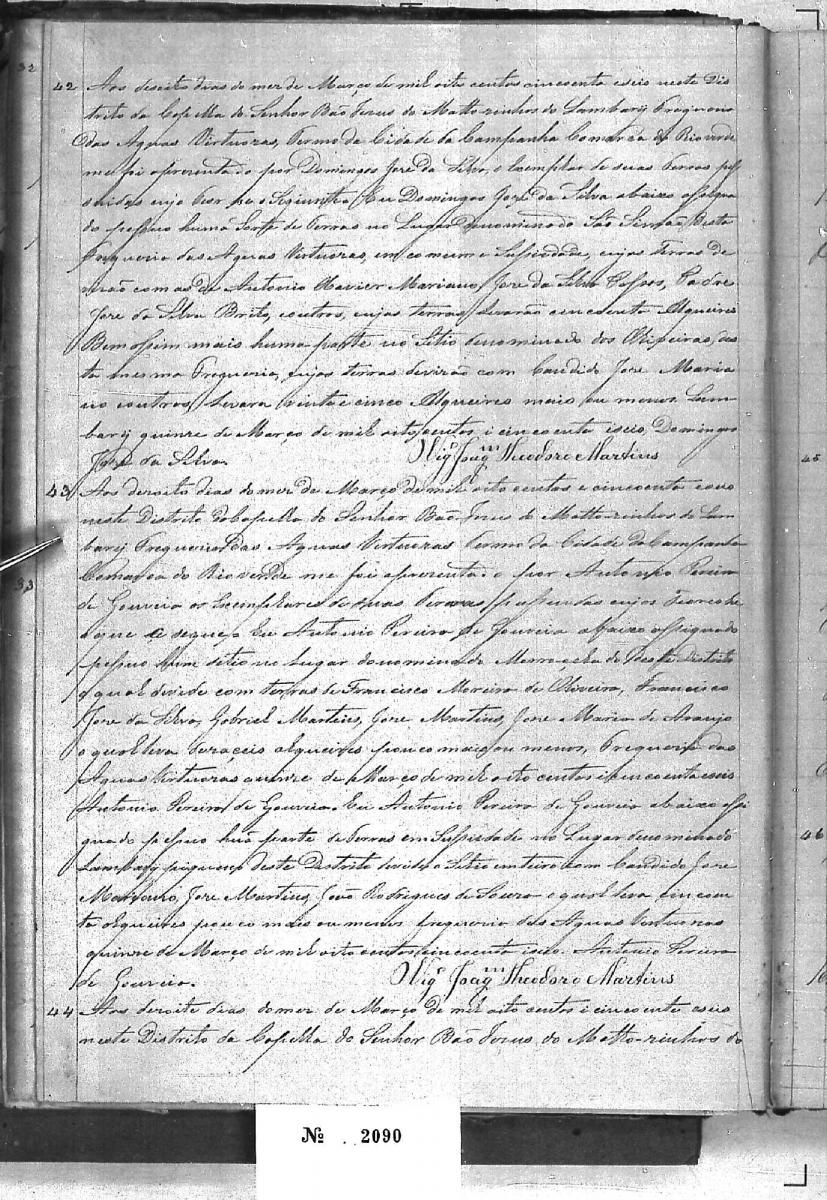 32
42 Aos desoito dias do mez de Março de mil oito centos cincoenta e seis neste Dis
trito da Capella do Senhor Bão Jesus do Matto-zinhos do Lambary Freguezia
das Agoas Virtuozas, Termo da Cidade da Campanha Comarca do Rio verde
me foi aprezentado por Domingos Jose da Silva, o Exemplar de suas Terras pos
suidas cujo Theor he o Seguinte Eu Domingos Jose da Silva abaixo assigna
do possuo huma Sorte de Terras no Lugar denominado São Simão Desta
Freguezia das Agoas Virtuozas, em comum e Sussiedade, cujas Terras de
vizão com as de Antonio Xavier Mariano, Jose da Silva Passos, Padre
Jose da Silva Brito, e outros, cujas terras levarão cincoenta Alqueires
Bem assim mais huma parte no Sitio denominado dos Oliveiras, des
ta mesma Freguezia, cujas terras devizão com Candido Jose Maria
no e outros, levara vinte e cinco Alqueires mais ou menos Lam
bary quinze de Março de mil oito centos i cincoenta e seis, Domingos
Jose da Silva. Vigº Joaqm Theodoro Martins
43 Aos dezoito dias do mez de Março de mil oito centos e cincoenta e seis
neste Distrito da Capella do Senhor Bão Jesus do Matto-zinhos do Lam
bary Freguezia das Agoas Virtuozas Termo da Cidade da Campanha
33
Comarca do Rio verde me foi aprezentado por Antonio Pereira
de Gouveia os Exemplares de suas Terras possuidas cujos Theores he
o que se segue, Eu Antonio Pereira de Gouveia abaixo assignado
possuo hum sitio no lugar denominado deste Distrito
o qual devide com terras de Francisco Moreira de Oliveira, Francisco
Jose da Silva, Gabriel Martins, Jose Martins, Jose Maria de Araujo
o qual leva dezaceis alqueires pouco mais ou menos, Freguezia das
Agoas Virtuozas quinze de Março de mil oito centos i cincoenta e seis
Antonio Pereira de Gouveia. Eu Antonio Pereira de Gouveia abaixo assi
gnado possuo huã parte de Terras em Sussiedade no Lugar denominado
Lambary pequeno deste Distrito devide o Sitio enteiro com Candido Jose
Mariano, Jose Martins, João Rodrigues de Souza o qual leva cincoen
ta alqueires pouco mais ou menos freguezia das Agoas Virtuozas
quinze de Março de mil oito centos cincoenta e seis. Antonio Pereira
de Gouveia. Vigº Joaqm Theodoro Martins
44 Aos dezoito dias do mez de Março de mil oito centos i cincoenta e seis
neste Distrito da Capella do Senhor Bão Jesus do Matto-zinhos do
45
46
Nº 2090